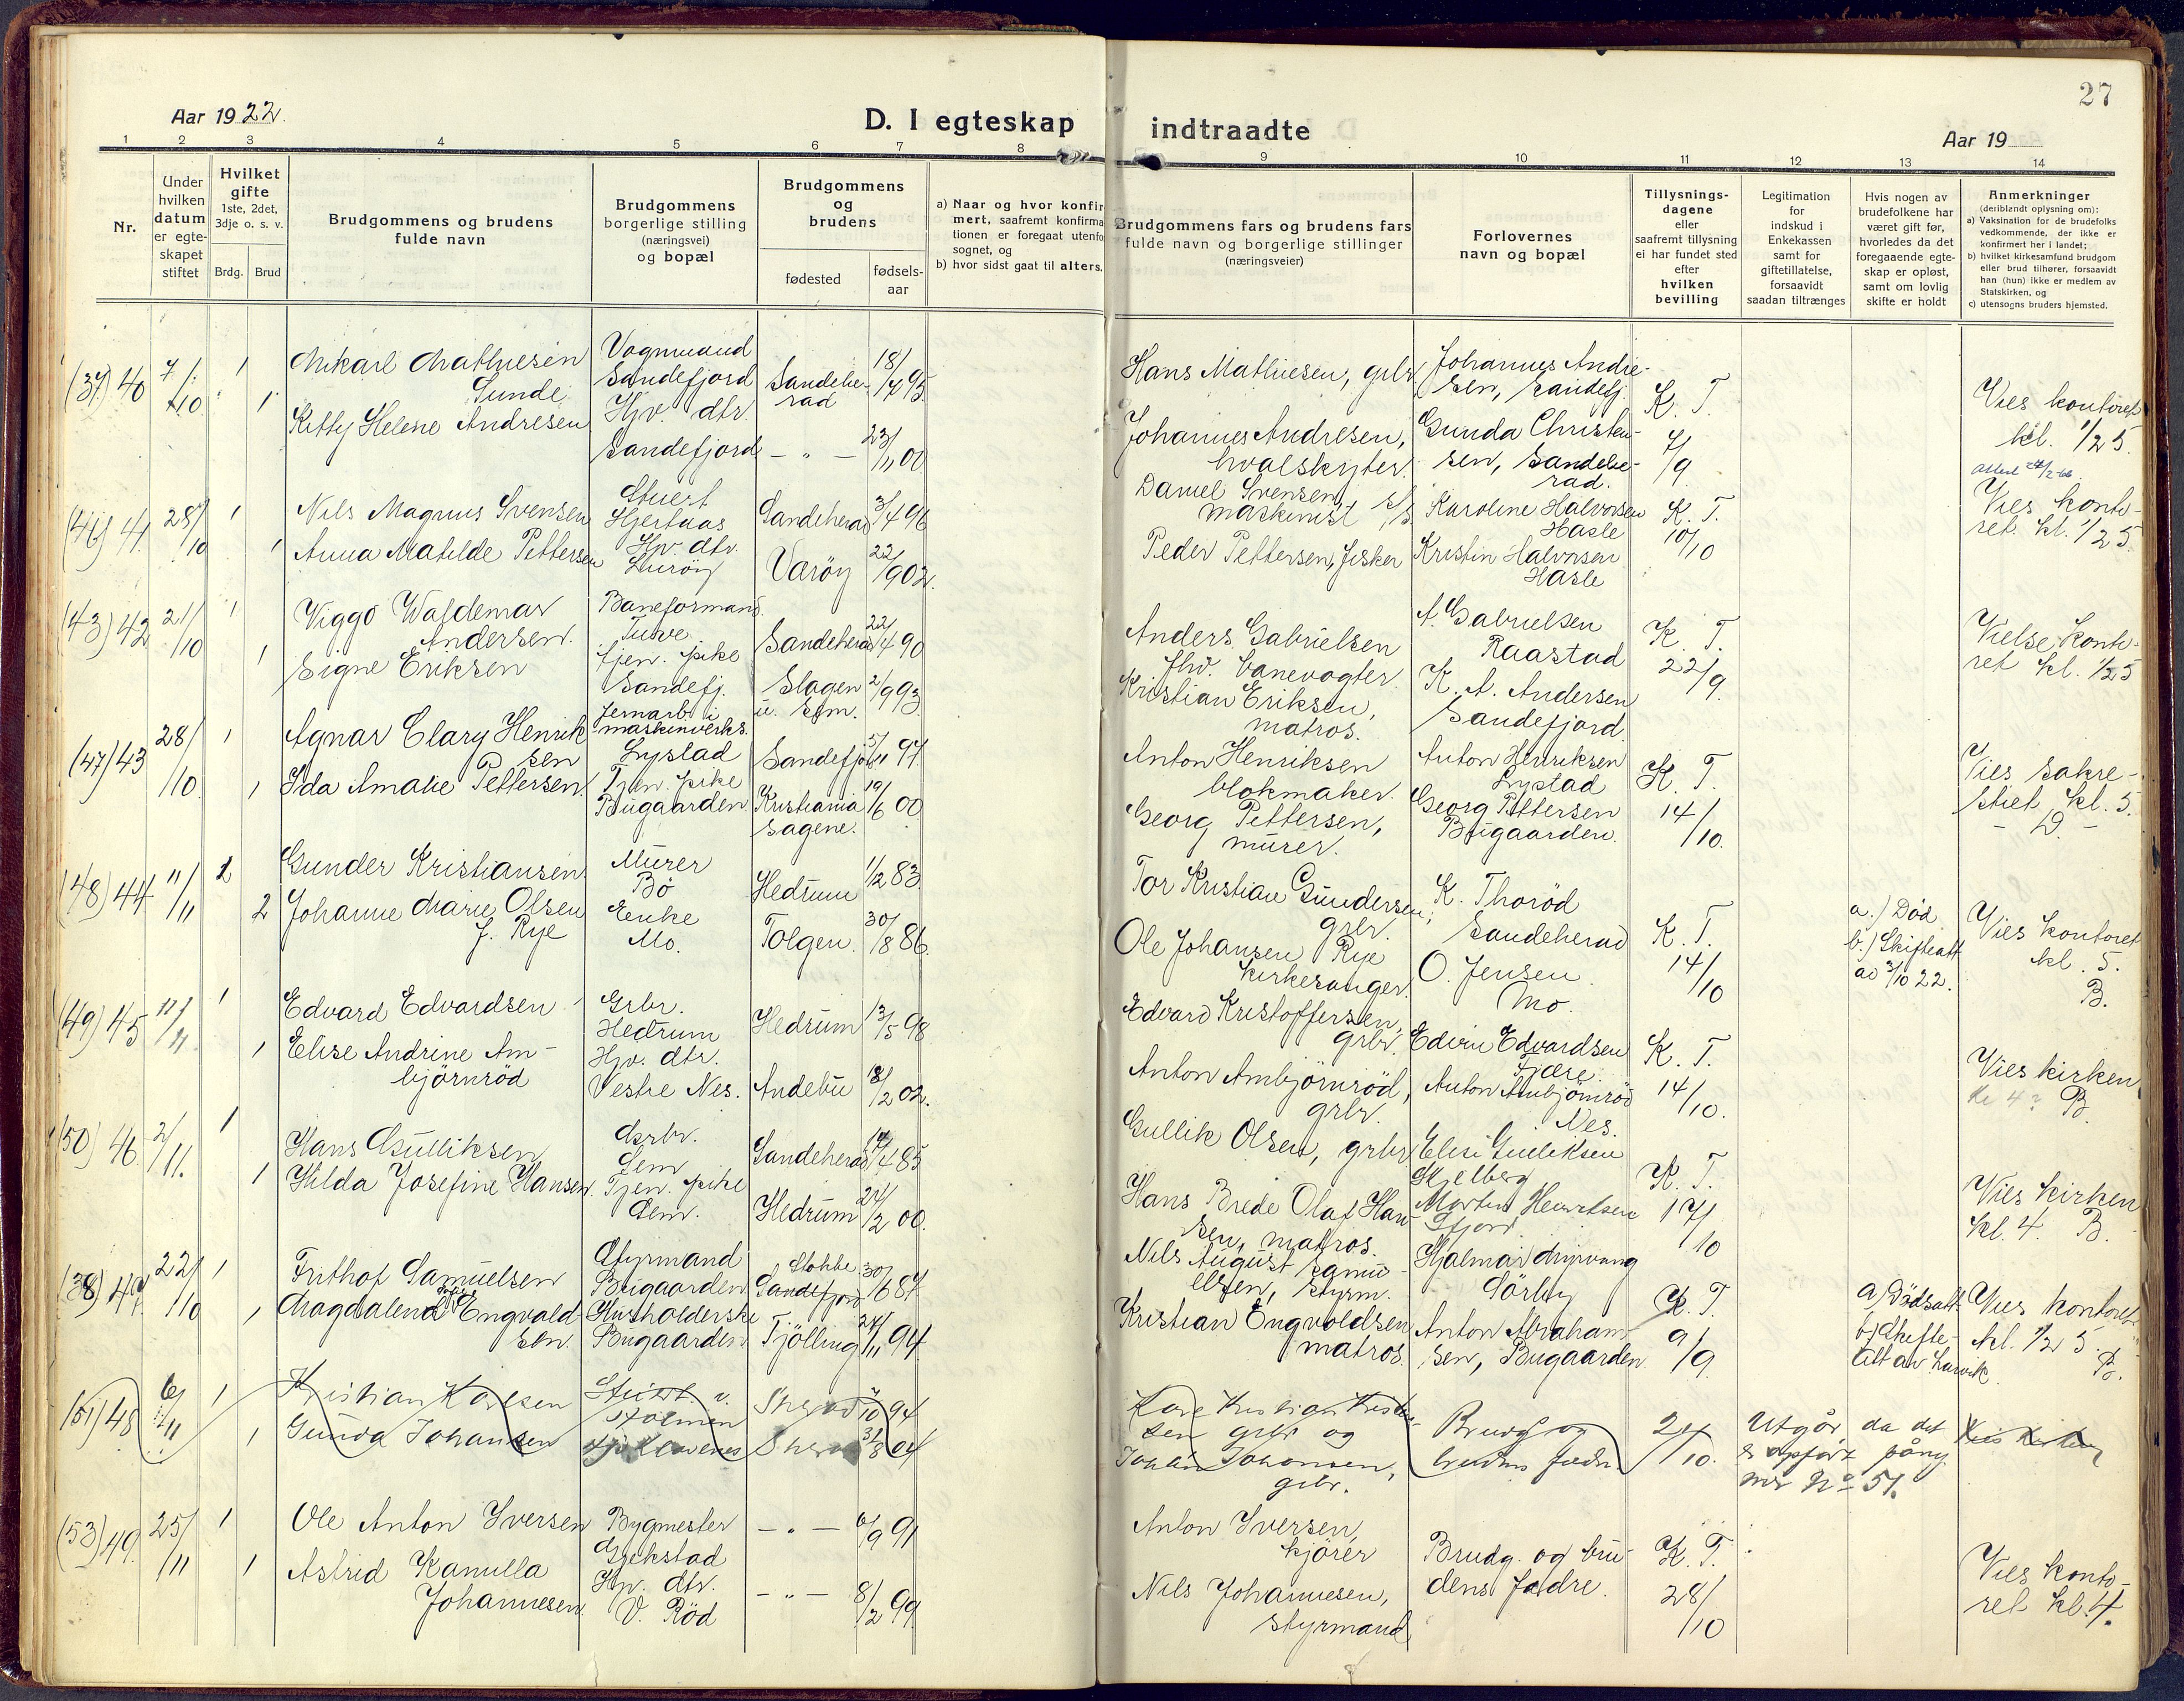 27
Aar 1922.
D. I egteskap indtraadte
Aar 19
1 2 3 4 5 6 7 8 9 10 11 12 13 14
Nr.
Under
hvilken
datum
er egte-
skapet
stiftet
Hvilket
gifte
1ste, 2det,
3dje o. s. v.
Brdg. Brud
Brudgommens og brudens
fulde navn
Brudgommens
borgerlige stilling
(næringsvei)
og bopæl
Brudgommens
og
brudens
fødested
fødsels-
aar
a) Naar og hvor konfir
mert, saafremt konfirma
tionen er foregaat utenfo
sognet, og
b) hvor sidst gaat til alters.
Brudgommens fars og brudens fars
fulde navn og borgerlige stillinger
(næringsveier)
Forlovernes
navn og bopæl
Tillysnings-
dagene
eller
saafremt tillysning
ei har fundet sted
efter
hvilken
bevilling
Legitimation
for
indskud i
Enkekassen
samt for
giftetillatelse,
forsaavidt
saadan tiltrænges
Hvis nogen av
brudefolkene har
været gift før,
hvorledes da det
foregaaende egte-
skap er opløst,
samt om lovlig
skifte er holdt
Anmerkninger
(deriblandt oplysning om):
a) Vaksination for de brudefolks
vedkommende, der ikke er
konfirmert her i landet;
b) hvilket kirkesamfund brudgom
eller brud tilhører, forsaavidt
han (hun) ikke er medlem av
Statskirken, og
c) utensogns bruders hjemsted.
(37) 40
7/10
1
1
Mikael Mathiesen
Sunde
Kitty Helene Andresen
Vognmand
Sandefjord
Hjv. dtr.
Sandefjord
Sandehe-
rad
— " —
18/4 95
23/11 00
Hans Mathiesen, grbr
Johannes Andresen,
hvalskyter.
Johannes Andre-
sen, Sandefj.
Gunda Christen-
sen, Sandehe-
rad.
K. T.
7/9
Vies kontoret
kl. 1/2 5.
(41) 41
28/10
1
1
Nils Magnus Svensen
Anna Matilde Pettersen
Stuert
Hjertaas
Hjv. dtr.
Lurøy
Sandeherad
Værøy
3/4 96
22/9 02.
Daniel Svensen,
maskinist
Peder Pettersen, fisker
Karoline Halvorsen
Hasle
Kristin Halvorsen
Hasle
K. T.
10/10
Vies konto-
ret. kl. 1/2 5.
(43) 42
21/10
1
1
Viggo Waldemar
Andersen.
Signe Eriksen
Baneformand.
Tuve
tjen. pike
Sandefj.
Sandeherad
Slagen
22/4 90
2/9 93
Anders Gabrielsen
fhv. banevogter
Kristian Eriksen,
matros.
A. Gabrielsen
Raastad
K. A. Andersen
Sandefjord
K. T.
22/9
Vielse konto-
ret kl. 1/2 5
(47) 43
28/10.
1
1
Agnar Clary Henrik
sen
Ida Amalie Pettersen.
Jernarb. i
maskinverks.
Lystad
Tjen. pike
Bugaarden
Sandefjo
Kristiania
Sagene.
5/11 97.
19/6 00
Anton Henriksen
blokmaker.
Georg Pettersen,
murer.
Anton Henriksen
Lystad
Georg Pettersen
Bugaarden.
K. T.
14/10.
Vies sakre-
stiet kl. 5.
(48) 44
11/11
2
2
Gunder Kristiansen
Johanne Marie Olsen
f. Rye
Murer
Bø
Enke
Mo.
Hedrum
Tolgen.
1/2 83
30/8 86.
Tor Kristian Gundersen,
grbr.
Ole Johansen Rye
kirkesanger.
K. Thorød
Sandeherad
O. Jensen
Mo.
K. T.
14/10
a.) Død
b.) Skifteatt
av 3/10 22.
Vies kontoret
kl. 5.
B.
(49) 45
11/11
1
1
Edvard Edvardsen
Elise Andrine Am-
bjørnrød
Grbr.
Hedrum
Hjv. dtr.
Vestre Nes.
Hedrum
Andebu
13/5 98
18/2 02.
Edvard Kristoffersen,
grbr.
Anton Ambjørnrød,
grbr.
Edvin Edvardsen
Fjære.
Anton Ambjørnrød
Nes.
K. T.
14/10.
Vies kirken
kl 4? B.
(50) 46
2/11.
1
1
Hans Gulliksen
Hilda Josefine Hansen.
Grbr.
Gem
Tjen. pike
Gem.
Sandeherad
Hedrum
4 85
24/2 00.
Gullik Olsen, grbr
Hans Brede Olaf Han-
sen, matros.
Elise Gulliksen
Skjelberg
Morten Henriksen
K. T.
17/10
Vies kirken
kl. 4. B.
(38) 47
22/10
1
1
Frithof Samuelsen
Magdalena Engvald
sen.
Styrmand
Bugaarden
Husholderske
Bugaarden
Stokke
Sandefjord
Tjølling
30/6 87
24/11 94
Nils August Samu-
elsen, styrm.
Kristian Engvoldsen
matros.
Hjalmar Myrvang
Sørby
Anton Abraham
sen, Bugaarden
K. T.
9/9
a) Dødsatt
b) Skifte-
att av Larvik
Vies kontoret
kl. 1/2 5.
B.
(51) 48
6/11
1
1
Kristian Karlsen
Gunda Johansen
10 94
31/8 04
Johan Johansen,
grbr.
Brudg. og
brudens fædre
24/10.
Utgår, da det
er opført påny
nr No 51.
Vies kirken
(53) 49.
25/11
1
1
Ole Anton Iversen
Astrid Kamilla
Johannesen.
Bygmester
Gjekstad
Hjv. dtr.
V. Rød
— " —
— " —
6/9 91
8/2 99
Anton Iversen,
kjører
Nils Johannesen,
styrmand
Brudg. og bru-
dens fædre.
K. T.
28/10
Vies konto-
ret kl. 4.